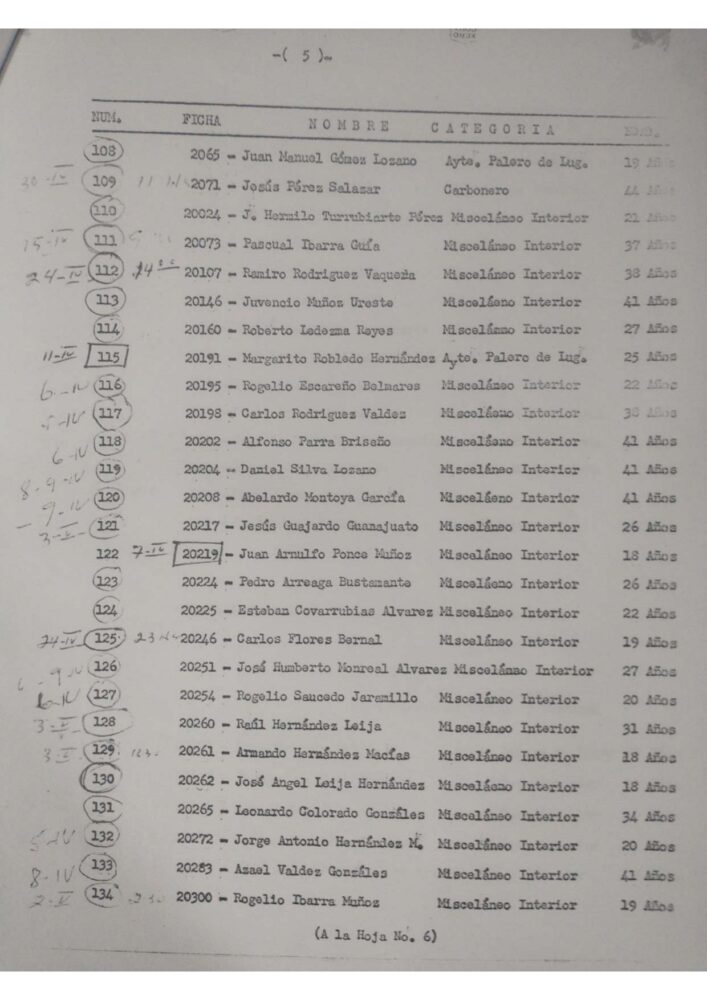 -( 5 )-
NUM. FICHA NOMBRE CATEGORIA
108 2065 - Juan Manuel Gómez Lozano Ayte. Palero de Lug. 19 Años
30-IV 109 2071 - Jesús Pérez Salazar Carbonero 44 Años
110 20024 - J. Hermilo Turrubiarte Pérez Misceláneo Interior 22 Años
15-IV 111 20073 - Pascual Ibarra Guía Misceláneo Interior 37 Años
24-IV 112 24 20107 - Ramiro Rodriguez Vaquera Misceláneo Interior 38 Años
113 20146 - Juvencio Muñoz Ureste Misceláeno Interior 41 Años
114 20160 - Roberto Ledezma Reyes Misceláneo Interior 27 Años
11-IV 115 20191 - Margarito Robledo Hernández Ayte. Palero de Lug. 25 Años
6-IV 116 20195 - Rogelio Escareño Belmares Misceláneo Interior 22 Años
5-IV 117 20198 - Carlos Rodriguez Valdez Misceláeno Interior 38 Años
6-IV 118 20202 - Alfonso Parra Briseño Misceláeno Interior 41 Años
8-9-IV 119 20204 - Daniel Silva Lozano Misceláneo Interior 41 Años
9-IV 120 20208 - Abelardo Montoya García Misceláeno Interior 41 Años
121 20217 - Jesús Guajardo Guanajuato Misceláneo Interior 26 Años
122 7-IV 20219 - Juan Arnulfo Ponce Muñoz Misceláneo Interior 18 Años
123 20224 - Pedro Arreaga Bustamante Misceláeno Interior 26 Años
124 20225 - Esteban Covarrubias Alvarez Misceláneo Interior 22 Años
24-IV 125 20246 - Carlos Flores Bernal Misceláneo Interior 19 Años
9-IV 126 20251 - José Humberto Monreal Alvarez Misceláneo Interior 27 Años
6-IV 127 20254 - Rogelio Saucedo Jaramillo Misceláneo Interior 20 Años
128 20260 - Raúl Hernández Leija Misceláneo Interior 31 Años
129 20261 - Armando Hernández Macías Misceláneo Interior 18 Años
130 20262 - José Angel Leija Hernández Misceláeno Interior 18 Años
131 20265 - Leonardo Colorado Gonzáles Misceláneo Interior 34 Años
5-IV 132 20272 - Jorge Antonio Hernández M. Misceláneo Interior 20 Años
8-IV 133 20283 - Azael Valdez Gonzáles Misceláneo Interior 41 Años
134 20300 - Rogelio Ibarra Muñoz Misceláneo Interior 19 Años
(A la Hoja No. 6)